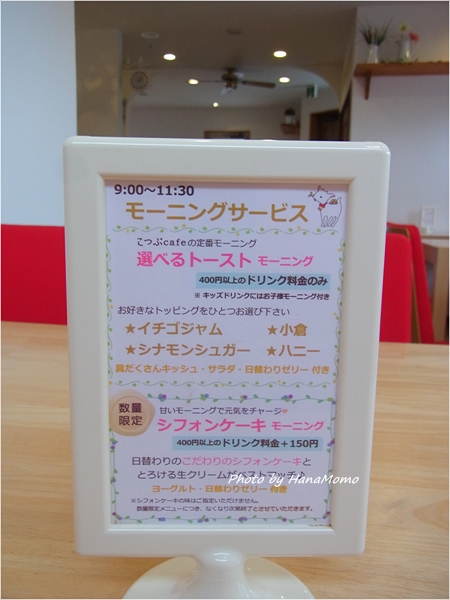 9:00～11:30
モーニングサービス
こつぶcafeの定番モーニング
選べるトースト モーニング
400円以上のドリンク料金のみ
※ キッズドリンクにはお子様モーニング付き
お好きなトッピングをひとつお選び下さい
★イチゴジャム ★小倉
★シナモンシュガー ★ハニー
具だくさんキッシュ・サラダ・日替わりゼリー 付き
数量
限定
甘いモーニングで元気をチャージ♥
シフォンケーキ モーニング
400円以上のドリンク料金＋150円
日替わりのこだわりのシフォンケーキと
とろける生クリームがベストマッチ♪
Photo by HanaMomo
ヨーグルト・日替わりゼリー 付き
※シフォンケーキの味はご指定いただけません。
数量限定メニューにつき、なくなり次第終了とさせていただきます。